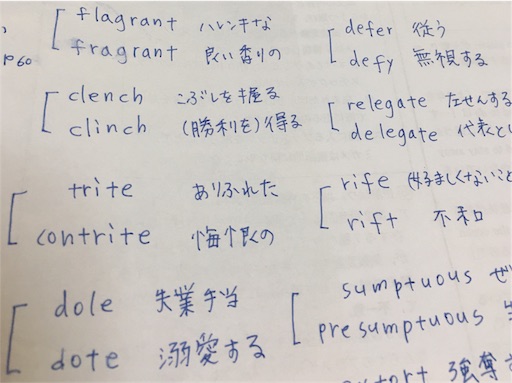 P60
flagrant ハレンチな
fragrant 良い香りの
clench こぶしを握る
clinch (勝利を)得る
trite ありふれた
contrite 悔恨の
dole 失業手当
dote 溺愛する
defer 従う
defy 無視する
relegate 左せんする
delegate 代表とし
rife (好ましくないこと
rift 不和
sumptuous ぜ
presumptuous
extort 強奪す